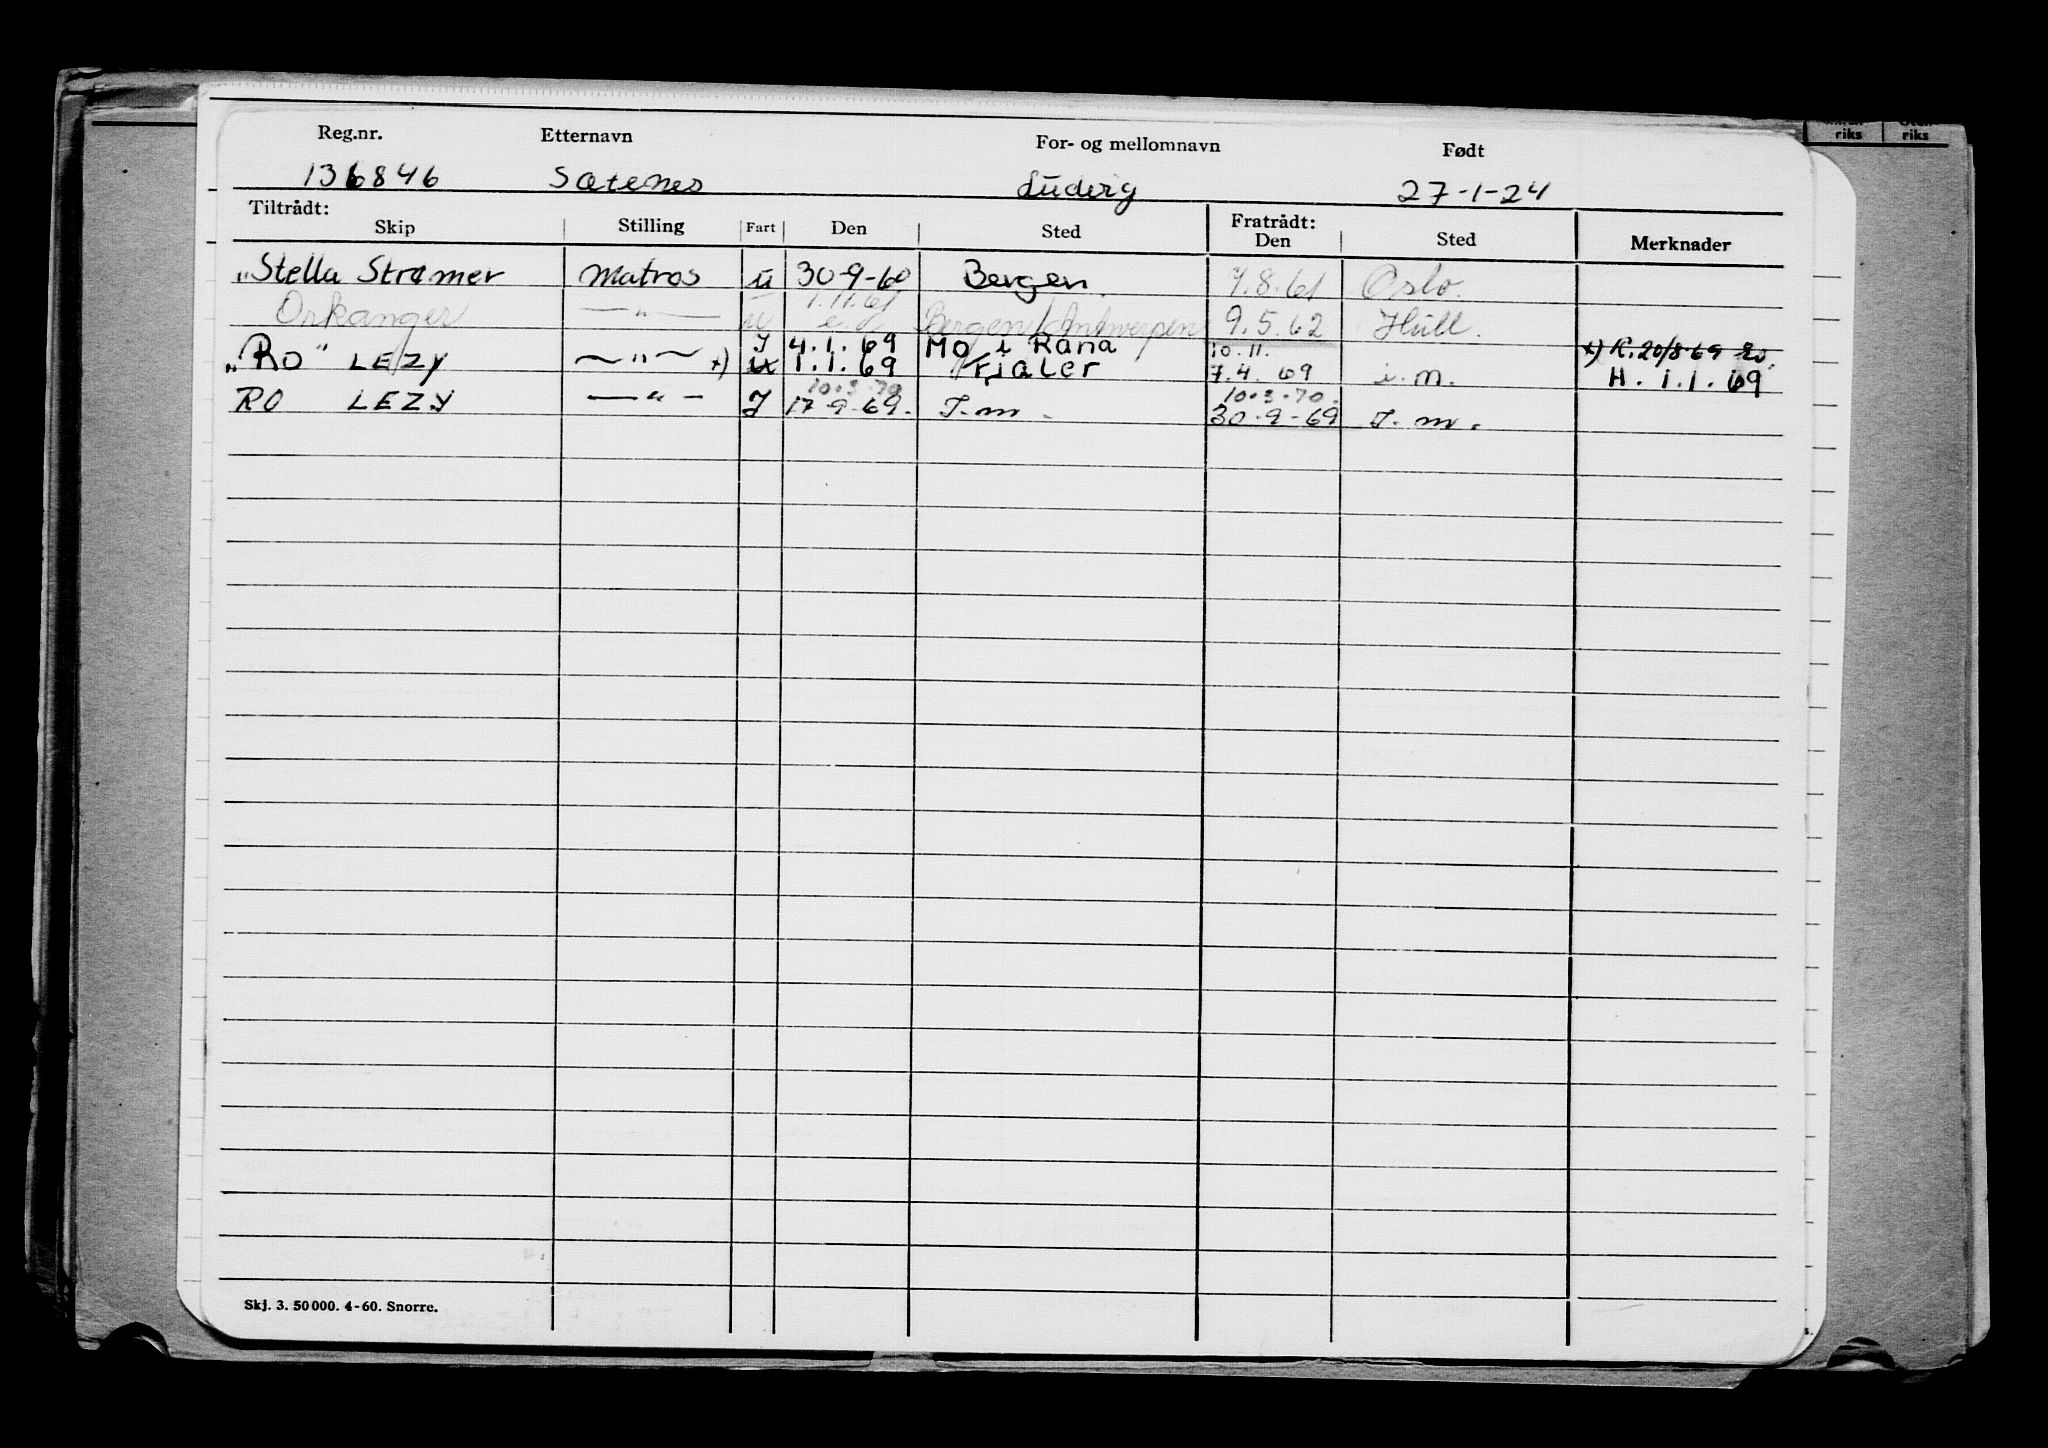 Reg.nr. Etternavn For- og mellomnavn Født
136846 Sætenes Ludvig 27-1-24
Tiltrådt: Fratrådt:
Skip Stilling Fart Den Sted Den Sted Merknader
"Stella Strømer Matros u 30-9-60 Bergen. 7.8.61 Oslo.
1.11.61
Orkanger —"— u Bergen/Antwerpen 9.5.62 Hull.
J 4.1.69 Mo i Rana 10.11. x) K. 20/8 69
"RO" LEZY —"— x) 1.1.69 Fjaler 7.4.69 i.m. H. 1.1.69
10.3.70 10.3.70.
RO LEZY —"— J 17-9-69. I.m. 30-9-69 I.m.
Skj. 3. 50000. 4-60. Snorre.
riks riks